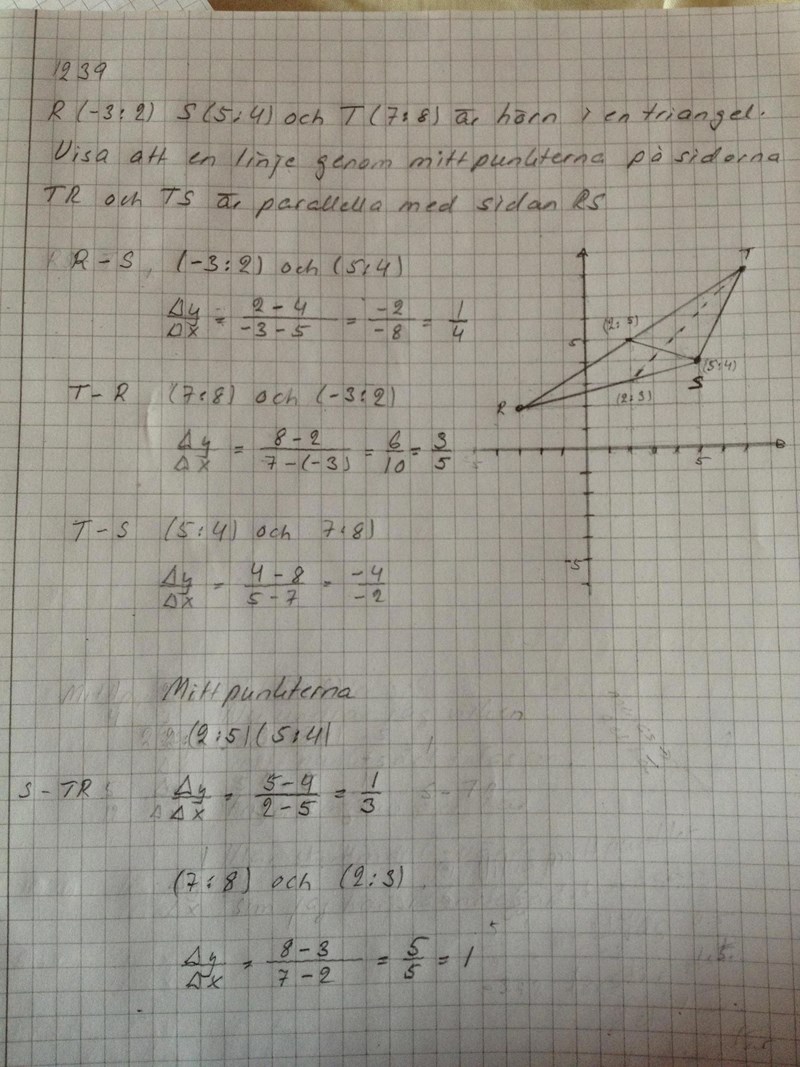 1239
R (-3:2) S(5:4) och T(7:8) är hörn i en triangel.
Visa att en linje genom mittpunkterna på sidorna
TR och TS är parallella med sidan RS
R-S, (-3:2) och (5:4)
Δy/Δx = 2-4/-3-5 = -2/-8 = 1/4
T-R (7:8) och (-3:2)
Δy/Δx = 8-2/7-(-3) = 6/10 = 3/5
T-S (5:4) och 7:8)
Δy/Δx = 4-8/5-7 = -4/-2
Mittpunkterna
(2:5)(5:4)
S-TR Δy/Δx = 5-4/2-5 = 1/3
(7:8) och (2:3)
Δy/Δx = 8-3/7-2 = 5/5 = 1
T
(2:5)
5
(5:4)
S
(2:3)
R
5
5
-5